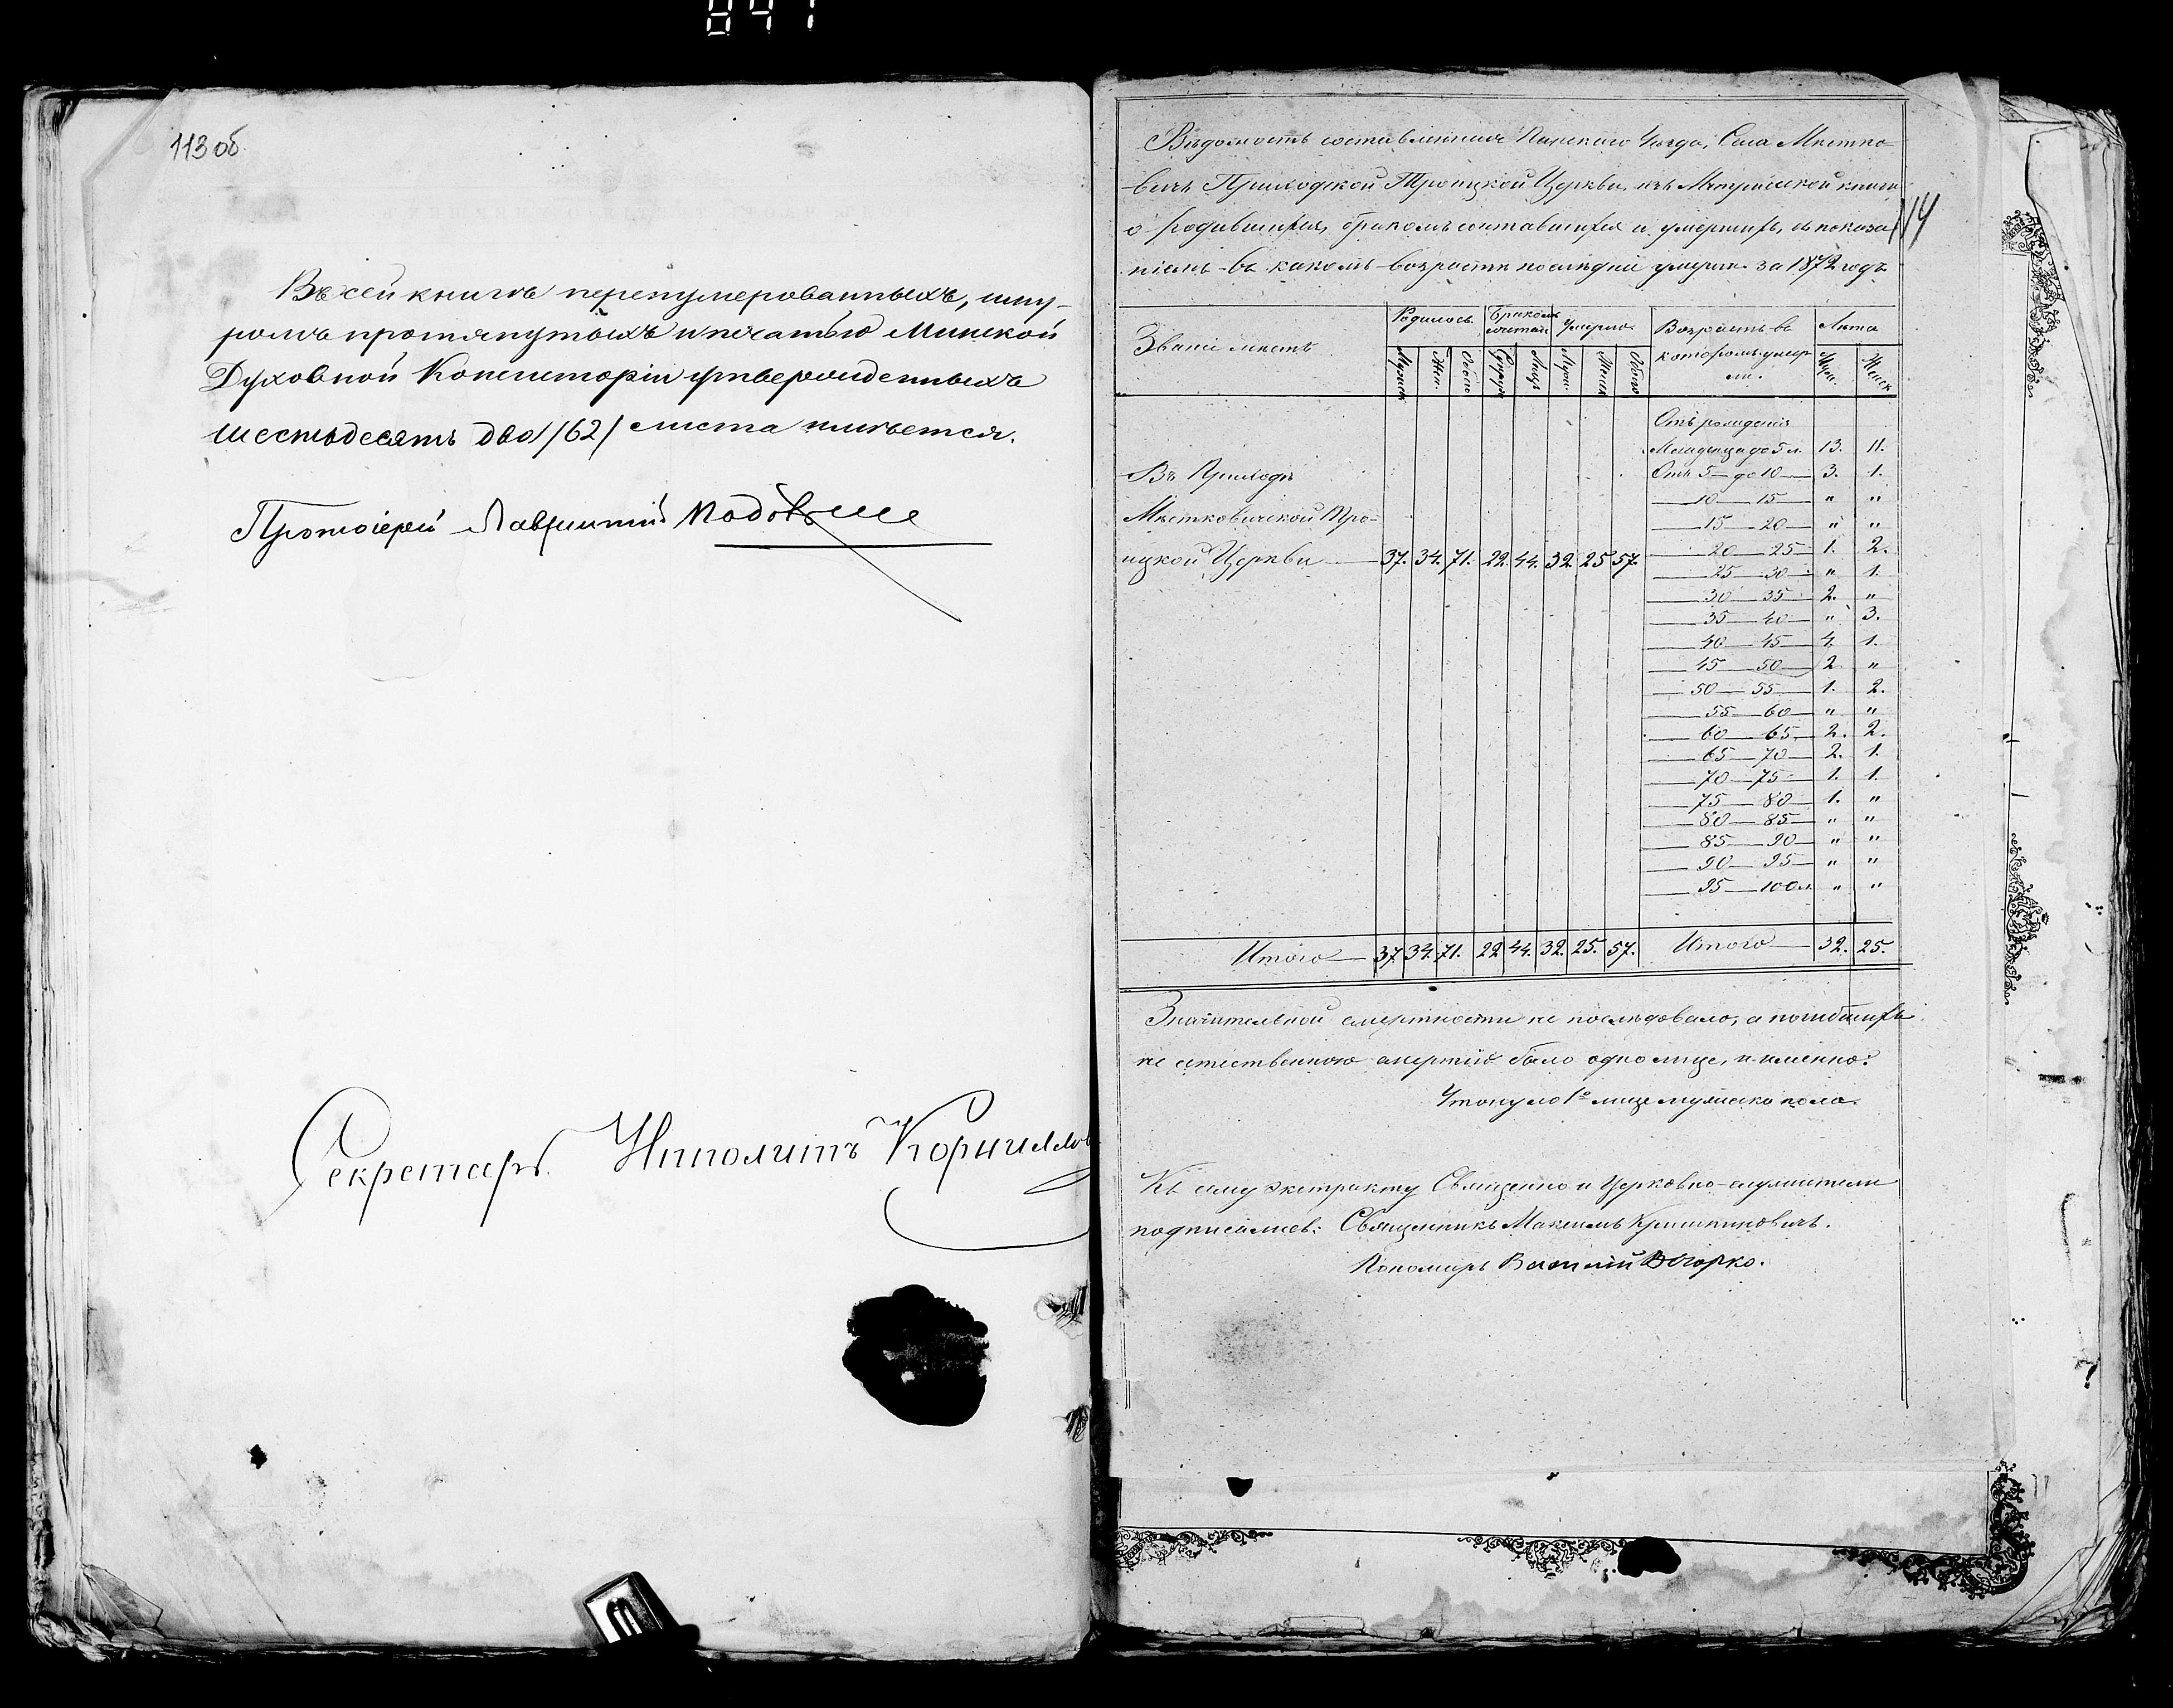 113 об.
Въ сей книгѣ перенумерованныхъ, шну-
ромъ протянутыхъ и печатью Минской
Духовной Консисторіи утвержденныхъ
шестьдесятъ два /62/ листа имѣется.
Протоіерей Лаврентій
Секретарь Ипполитъ Корнилов
114
Вѣдомость составленная Пинскаго Уѣзда, Села Мѣстко-
вичъ Приходской Троицкой Церкви, изъ Метрической книги
о родившихся, бракомъ сочетавшихся и умершихъ, съ показа
ніемъ въ какомъ возрастѣ послѣдніе умерли за 1872 годъ
Званіе мѣстъ Родилось Бракомъ сочетал Умерло Возрастъ въ которомъ умер ли. Лѣта
Мужск. Жен. Обоего Супруж Лицъ Муж. Женск Обоего Муж. Женск
Отъ рожденія
Младенца до 5 л. 13. 11.
Въ Приходѣ
Отъ 5 — до 10 — 3. 1.
— 10 — 15 " "
Мѣстковичской Тро-
— 15 — 20 — " "
ицкой Церкви — 37. 34. 71. 22. 44. 32. 25 57.
— 20 — 25 1. 2.
— 25 — 30 " 1.
— 30 — 35 2. "
— 35 — 40 — " 3.
— 40 — 45 4. 1.
— 45 — 50 2. "
— 50 — 55 — 1. 2.
— 55 — 60 — " "
— 60 — 65 2. 2.
— 65 — 70 — 2. 1.
— 70 — 75 1. 1.
— 75 — 80 — 1. "
— 80 — 85 — " "
— 85 — 90 — " "
— 90 — 95 — " "
— 95 — 100 л. " "
Итого — 37 34. 71. 22 44. 32. 25. 57. Итого — 32. 25.
Значительной смертности не послѣдовало, а погибшихъ
не естественною смертію было одно лице, и именно:
Утонуло 1 лице мужеска пола.
Къ сему экстракту Священно и Церковно-служители
подписались: Священникъ Максимъ
Пономарь Василій